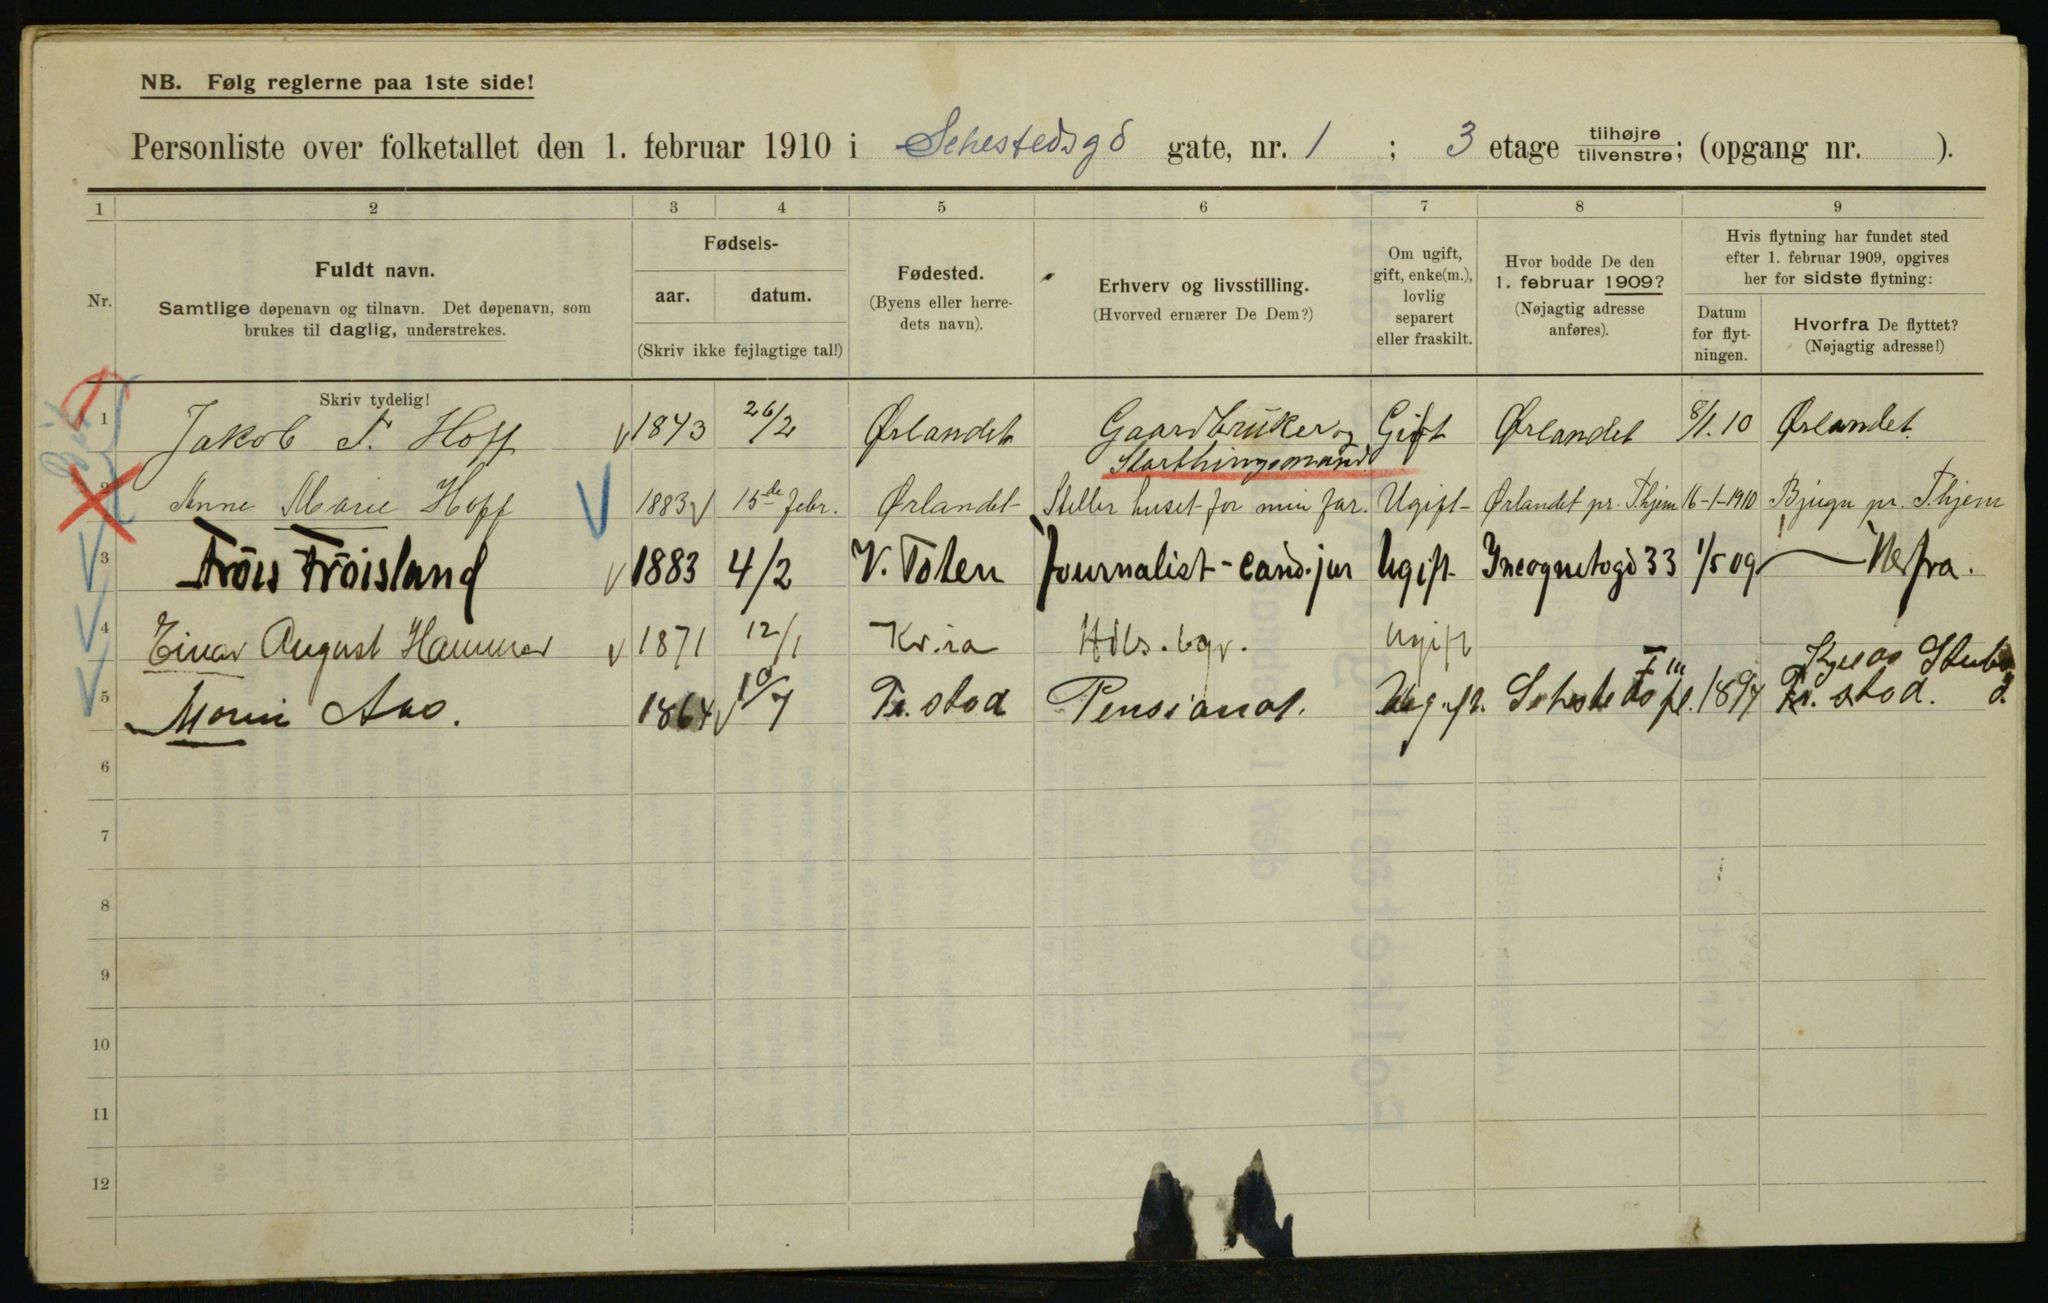 NB. Følg reglerne paa 1ste side!
Personliste over folketallet den 1. februar 1910 i Sehestedsgd gate, nr. 1 ; 3 etage tilhøjre tilvenstre; (opgang nr. ).
1 2 3 4 5 6 7 8 9
Nr.
Fuldt navn.
Samtlige døpenavn og tilnavn. Det døpenavn, som
brukes til daglig, understrekes.
Fødsels-
aar. datum.
(Skriv ikke fejlagtige tal!)
Fødested.
(Byens eller herre-
dets navn).
Erhverv og livsstilling.
(Hvorved ernærer De Dem?)
Om ugift,
gift, enke(m.),
lovlig
separert
eller fraskilt.
Hvor bodde De den
1. februar 1909?
(Nøjagtig adresse
anføres).
Hvis flytning har fundet sted
efter 1. februar 1909, opgives
her for sidste flytning:
Datum
for flyt-
ningen.
Hvorfra De flyttet?
(Nøjagtig adresse!)
Skriv tydelig!
1 Jakob T. Hoff 1843 26/2 Ørlandet Gaardbruker og Storthingsmand Gift Ørlandet 8/1.10 Ørlandet.
2 Anne Marie Hoff 1883 15de febr. Ørlandet Steller huset for min far. Ugift Ørlandet pr. Thjem 16-1-1910 Bjugn pr. T.hjem
3 Fröis Fröisland 1883 4/2 V. Toten Journalist - cand. jur Ugift Incognitogd 33 1/5 09 Herfra.
4 Einar August Hammer 1871 12/1 Kr.ia Hdls.bgr. Ugift
5 Aas. 1864 10/7 Fr. stad Pensionat. Ugift. 1897 Fr. stad.
6
7
8
9
10
11
12